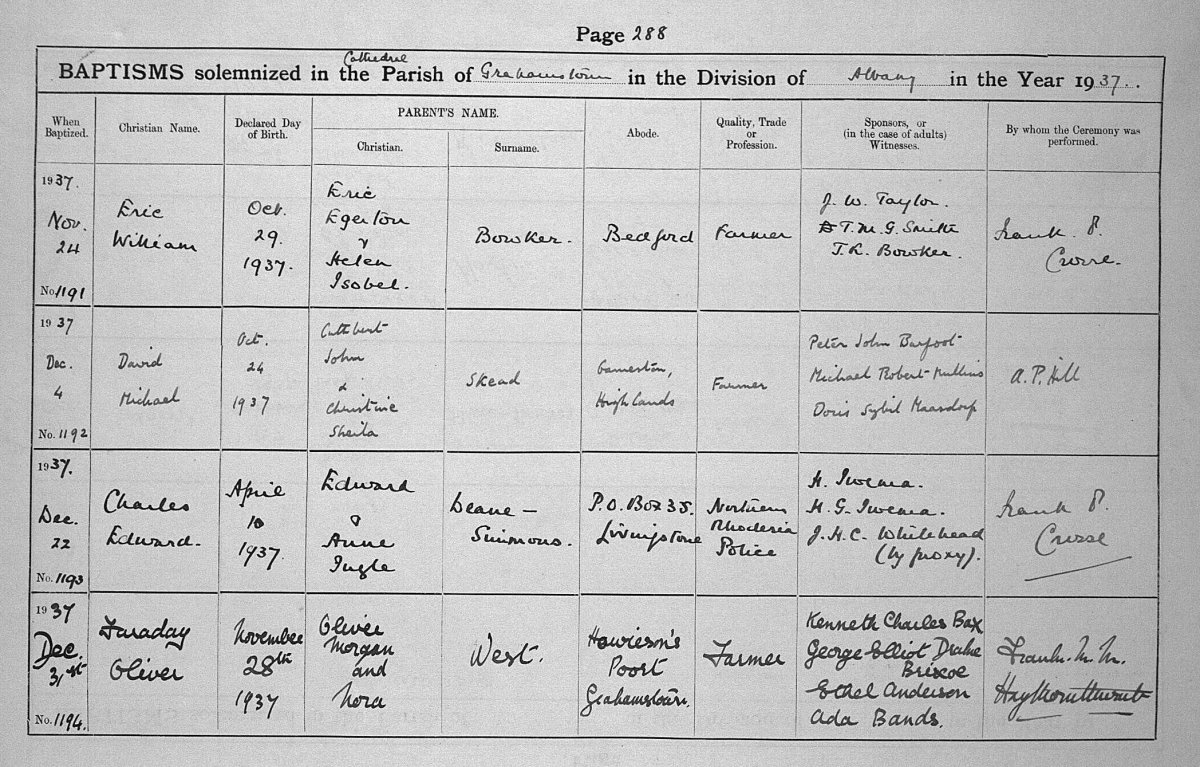 Page 288
Cathedral
BAPTISMS solemnized in the Parish of Grahamstown in the Division of Albany in the Year 1937.
When Baptized.
Christian Name.
Declared Day of Birth.
PARENT'S NAME.
Christian.
Surname.
Abode.
Quality, Trade or Profession.
Sponsors, or (in the case of adults) Witnesses.
By whom the Ceremony was performed.
1937.
Nov.
24
No. 1191
Eric
William
Oct.
29.
1937.
Eric
Egerton
&
Helen
Isobel.
Bowker.
Bedford
Farmer
J. W. Taylor.
T. M. G. Smith
T. R. Bowker.
Frank P.
Crosse.
1937
Dec.
4
No. 1192
David
Michael
Oct.
24
1937
Cuthbert
John
&
Christine
Sheila
Skead
Gamerton,
Highlands
Farmer
Peter John Barfoot
Michael Robert Mullins
Doris Sybil Maasdorp
A. P. Hill
1937.
Dec.
22
No. 1193
Charles
Edward.
April
10
1937.
Edward
&
Anne
Ingle
Deane-
Simmons.
P.O. Box 35.
Livingstone
Northern
Rhodesia
Police
H. Iwema.
H. G. Iwema.
J. H. C. Whitehead
(by proxy).
Frank P.
Crosse
1937
Dec.
31st
No. 1194.
Faraday
Oliver
November
28th
1937
Oliver
Morgan
and
Nora
West.
Howieson's
Poort
Grahamstown.
Farmer
Kenneth Charles Bax
George Elliot Drake
Briscoe
Ethel Anderson
Ada Bands.
Frank. M. M.